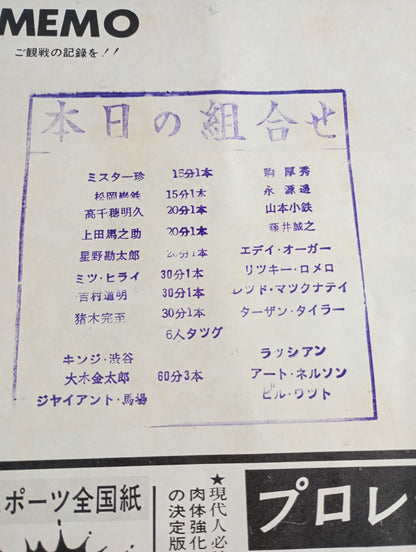 MEMO
ご観戦の記録を!!
本日の組合せ
ミスター珍 15分1本 駒厚秀
松岡巌鉄 15分1本 永源遙
高千穂明久 20分1本 山本小鉄
上田馬之助 20分1本 藤井誠之
星野勘太郎 20分1本 エデイ・オーガー
ミツ・ヒライ 30分1本 リツキー・ロメロ
吉村道明 30分1本 レツド・マツクナテイ
猪木完至 30分1本 ターザン・タイラー
6人タツグ
キンジ・渋谷 ラッシアン
大木金太郎 60分3本 アート・ネルソン
ジヤイアント・馬場 ビル・ワツト
ポーツ全国紙
★現代人必
肉体強化
の決定版
プロレ